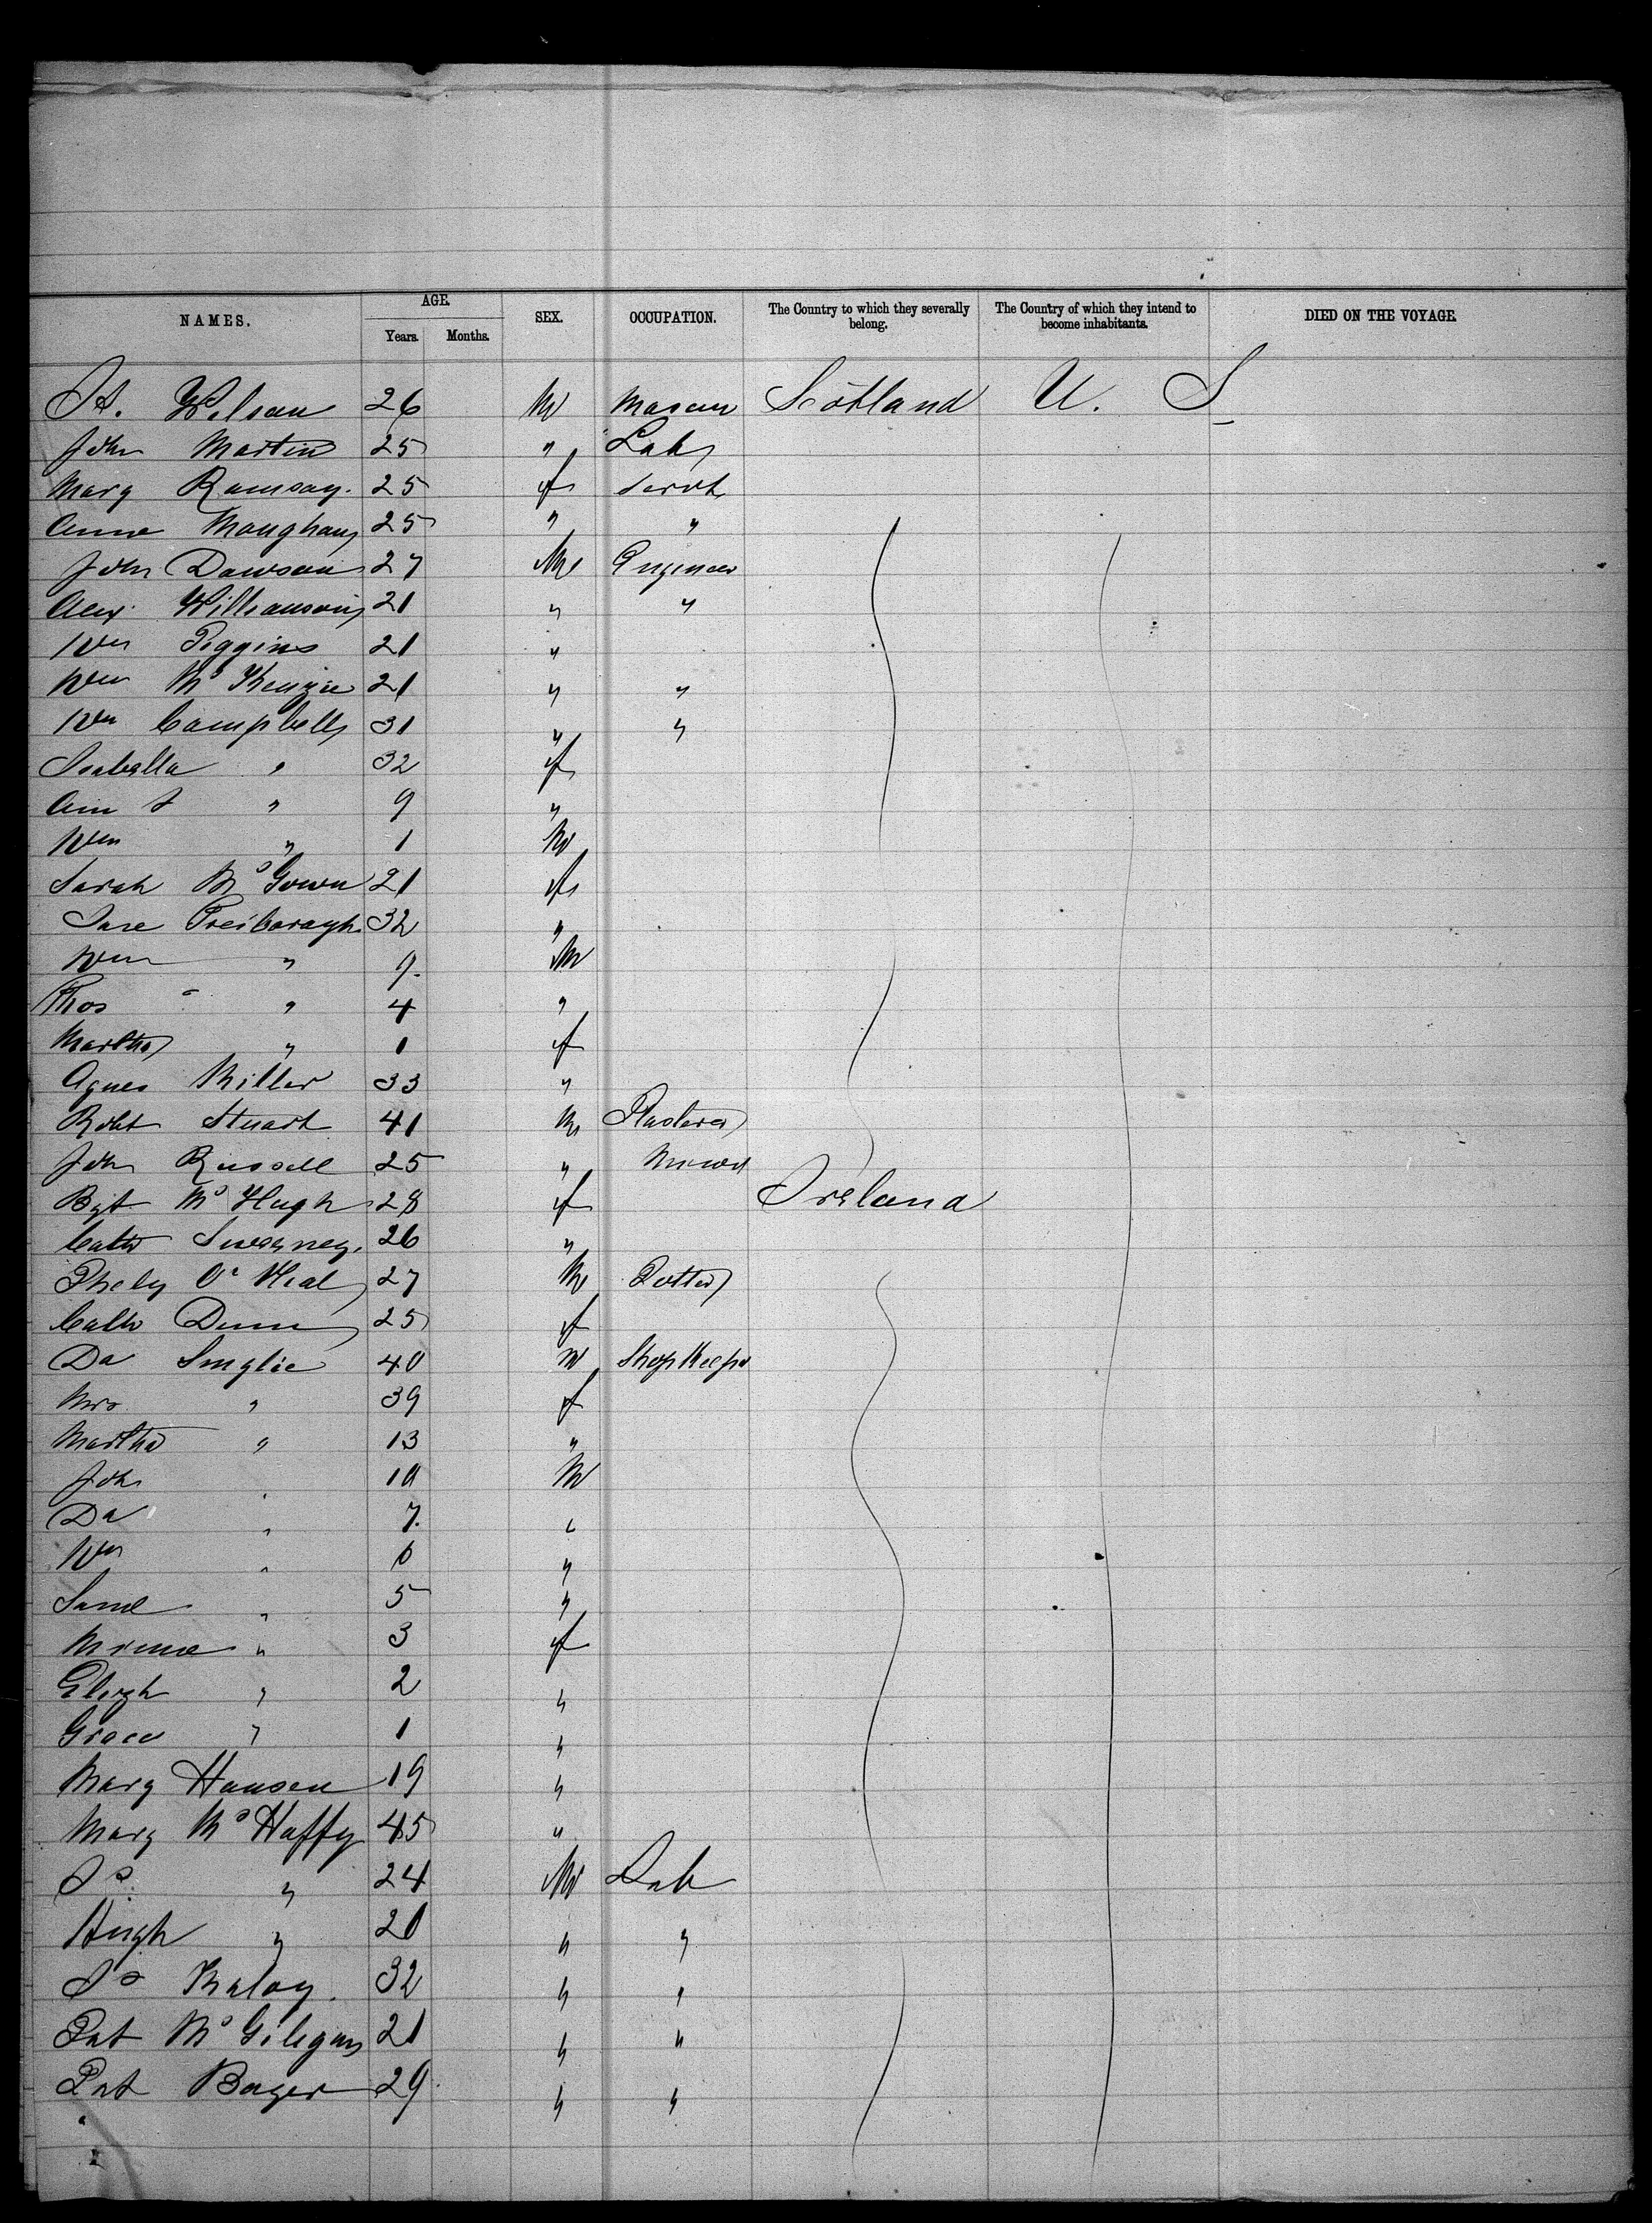 NAMES. AGE. Years. Months. SEX. OCCUPATION. The Country to which they severally belong. The Country of which they intend to become inhabitants. DIED ON THE VOYAGE.
Wilson 26 M Mason Scotland U. S
John Martin 25 " Lab
Mary Ramsay. 25 f Servt
Anne Maughan 25 " "
John Dawson 27 M Engineer
Alex Williamson 21 " "
Wm Piggins 21 "
Wm McKenzie 21 " "
Wm Campbell 31 " "
Isabella " 32 f
Ann " 9 "
Wm " 1 M
Sarah McGown 21 f
Jane 32 "
Wm " 9. M
Thos " 4 "
Martha " 1 f
Agnes Miller 33 "
Robt Stuart 41 M Plasterer
John Russell 25 " Miner
Bgt McHugh 28 f Ireland
Cath Sweeney. 26 "
O'Neal 27 M Potter
Cath Dunn 25 f
Da Smylie 40 M Shop Keeper
Mrs " 39 f
Martha " 13 "
John " 10 M
Da " 7. "
Wm " 6 "
Saml " 5 "
" 3 f
Elizh " 2 "
Grace " 1 "
Mary Hansen 19 "
Mary McHaffy 45 "
Js " 24 M Lab
Hugh " 20 " "
Js Maloy. 32 " "
Pat McGiligan 21 " "
Pat Boyer 29 " "